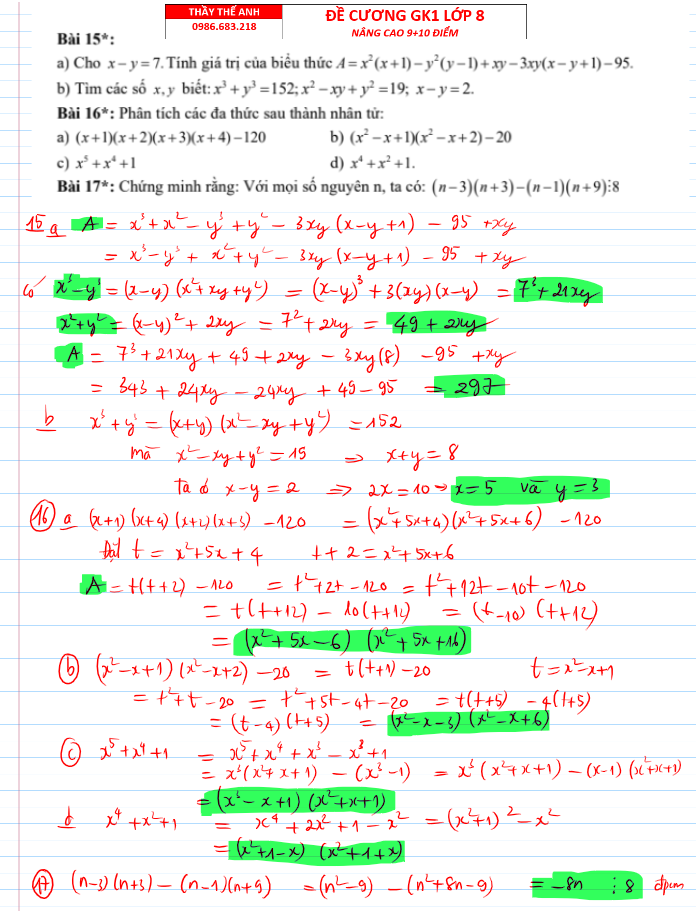 THẦY THẾ ANH
0986.683.218
ĐỀ CƯƠNG GK1 LỚP 8
NÂNG CAO 9+10 ĐIỂM
Bài 15*:
a) Cho x – y = 7. Tính giá trị của biểu thức A = x²(x+1) – y²(y–1) + xy – 3xy(x–y+1) – 95.
b) Tìm các số x, y biết: x³ + y³ = 152; x² – xy + y² = 19; x – y = 2.
Bài 16*: Phân tích các đa thức sau thành nhân tử:
a) (x+1)(x+2)(x+3)(x+4) – 120 b) (x² – x+1)(x² – x+2) – 20
c) x⁵ + x⁴ + 1 d) x⁴ + x² + 1.
Bài 17*: Chứng minh rằng: Với mọi số nguyên n, ta có: (n–3)(n+3) – (n–1)(n+9)⋮8
15 a A = x³ + x² – y³ + y² – 3xy (x–y+1) – 95 + xy
= x³ – y³ + x² + y² – 3xy (x–y+1) – 95 + xy
có x³ – y³ = (x–y) (x² + xy + y²) = (x–y)³ + 3(xy)(x–y) = 7³ + 21xy
x² + y² = (x–y)² + 2xy = 7² + 2xy = 49 + 2xy
A = 7³ + 21xy + 49 + 2xy – 3xy(8) – 95 + xy
= 343 + 24xy – 24xy + 49 – 95 = 297
b x³ + y³ = (x+y) (x² – xy + y²) = 152
mà x² – xy + y² = 15 ⇒ x + y = 8
ta có x – y = 2 ⇒ 2x = 10 → x = 5 và y = 3
16 a (x+1) (x+4) (x+2) (x+3) – 120 = (x² + 5x + 4)(x² + 5x + 6) – 120
Đặt t = x² + 5x + 4 t + 2 = x² + 5x + 6
A = t(t+2) – 120 = t² + 2t – 120 = t² + 12t – 10t – 120
= t(t+12) – 10(t+12) = (t–10) (t+12)
= (x² + 5x – 6) (x² + 5x + 16)
b (x² – x + 1) (x² – x + 2) – 20 = t(t+1) – 20 t = x² – x + 1
= t² + t – 20 = t² + 5t – 4t – 20 = t(t+5) – 4(t+5)
= (t–4) (t+5) = (x² – x – 3) (x² – x + 6)
c x⁵ + x⁴ + 1 = x⁵ + x⁴ + x³ – x³ + 1
= x³(x² + x + 1) – (x³ – 1) = x³ (x² + x + 1) – (x–1) (x² + x + 1)
= (x³ – x + 1) (x² + x + 1)
d x⁴ + x² + 1 = x⁴ + 2x² + 1 – x² = (x² + 1)² – x²
= (x² + 1 – x) (x² + 1 + x)
17 (n–3)(n+3) – (n–1)(n+9) = (n² – 9) – (n² + 8n – 9) = –8n ⋮ 8 đpcm